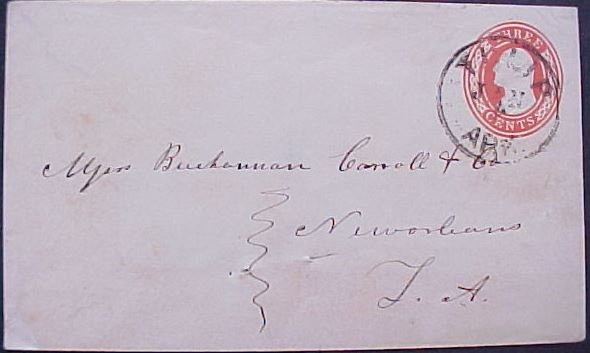 THREE
CENTS
ARK.
Myers Buchannan Carroll & Co
Neworleans
L. A.